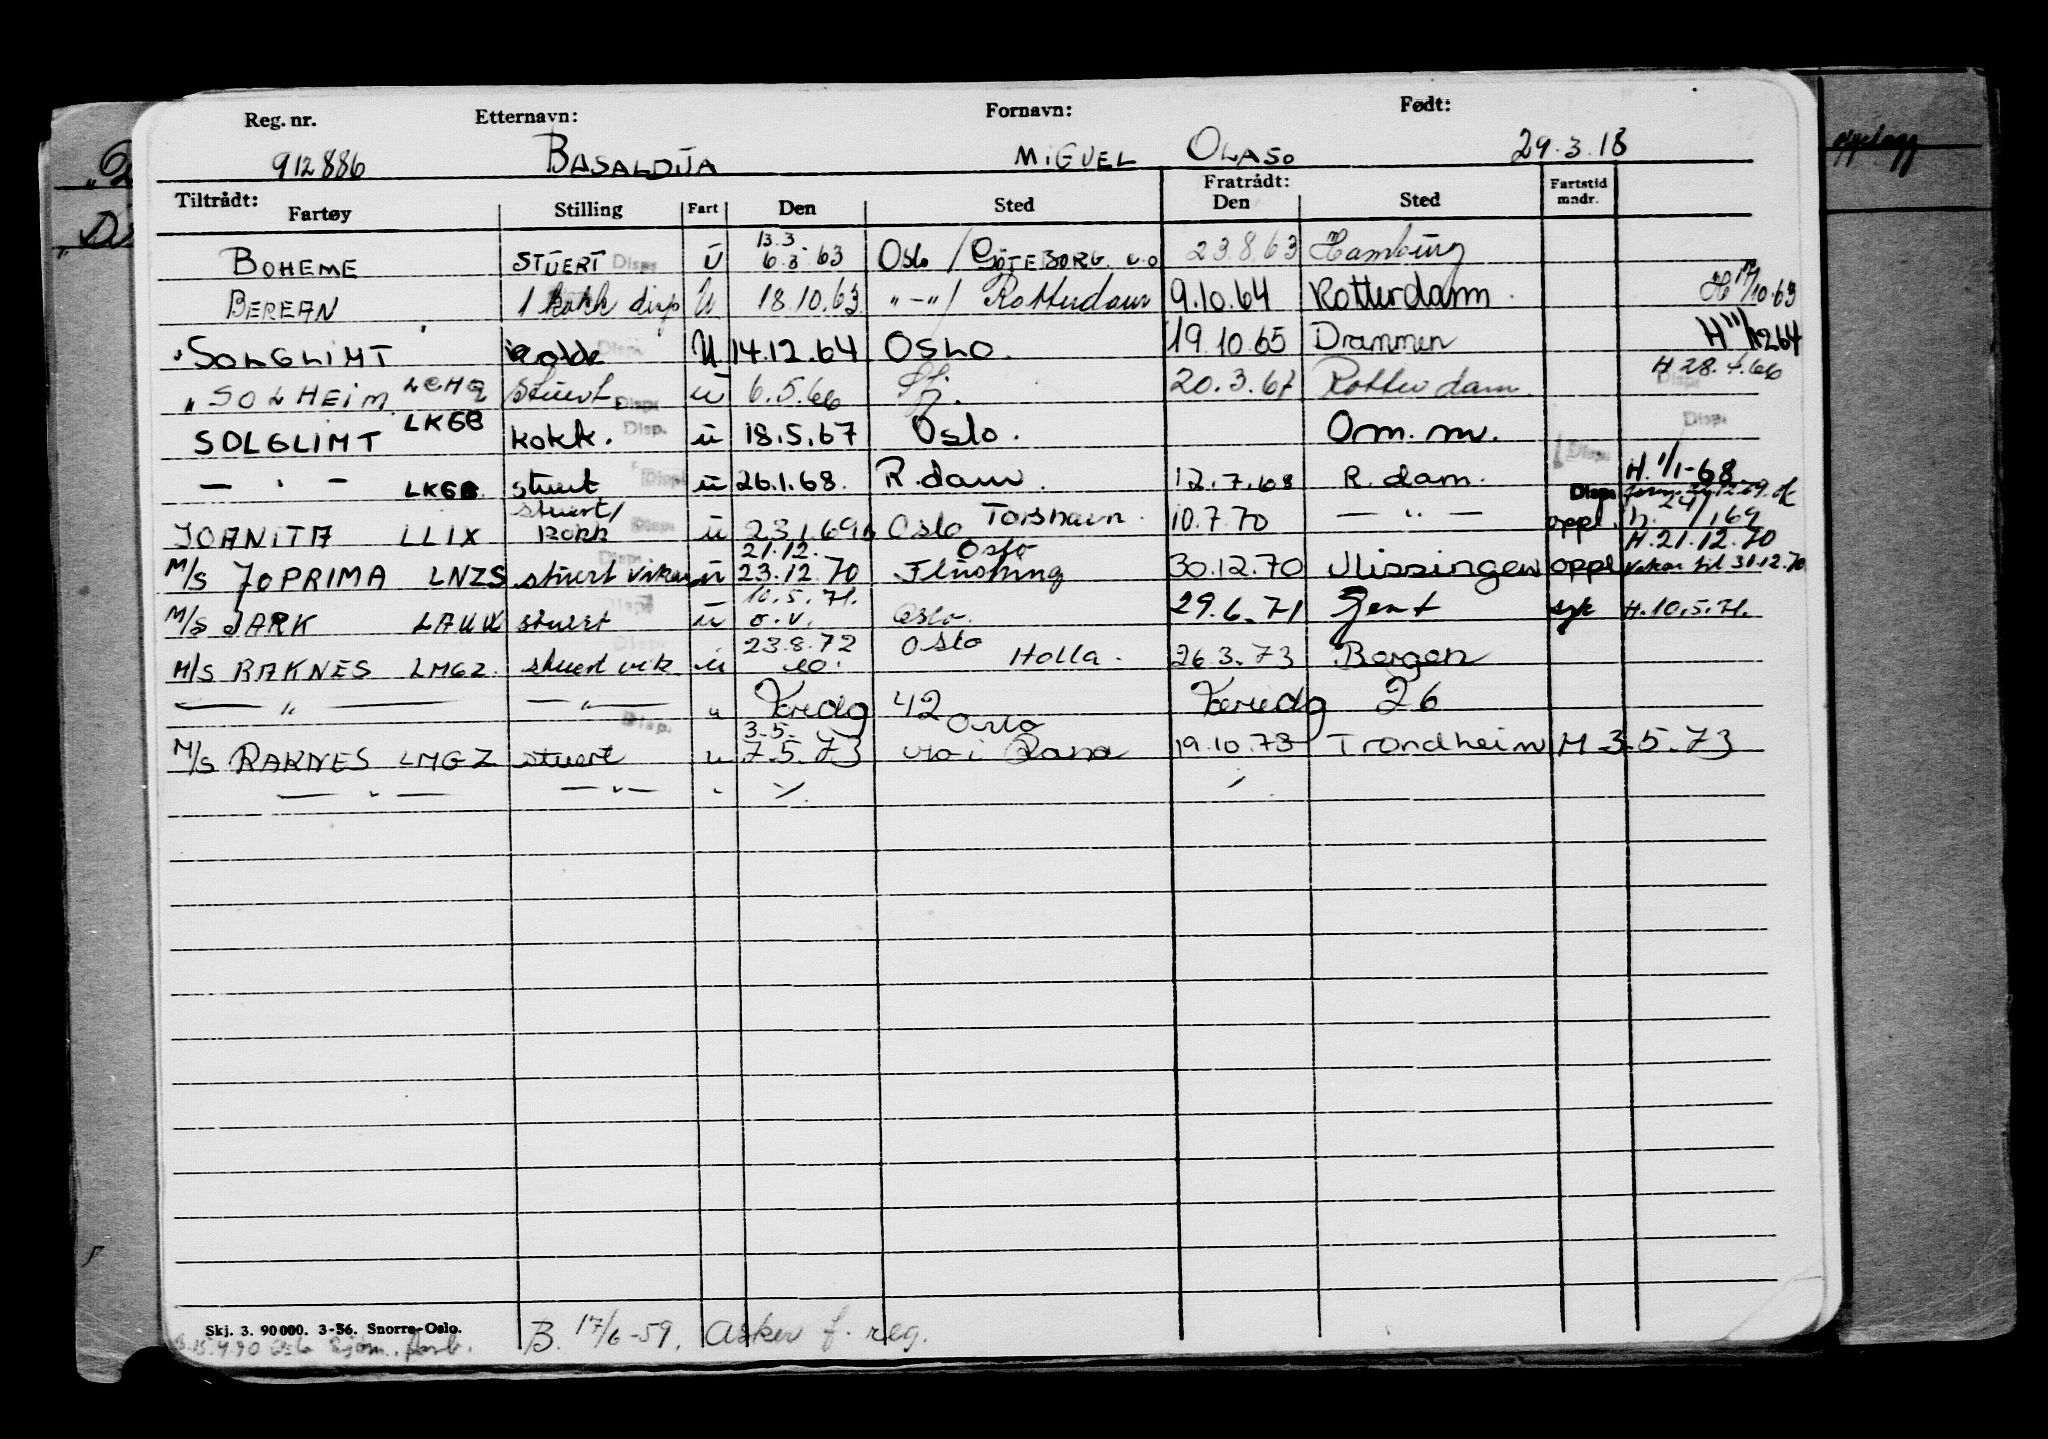 Reg. nr. Etternavn: Fornavn: Født:
912886 BASALDUA MIGUEL OLASO 29.3.18
Tiltrådt: Fratrådt: Fartstid
Fartøy Stilling Fart Den Sted Den Sted mndr.
13.3.
BOHEME STUERT Disp. U 6.3.63 Oslo / GÖTEBORG 23.8.63 Hamburg
BEREAN 1 kokk disp U 18.10.63 "-"/ Rotterdam 9.10.64 Rotterdam H 17/10.63
SOLGLIMT kokk Disp. U 14.12.64 OSLO. 19.10.65 Drammen H 11/12 64
" SOLHEIM LCHQ Stuert Disp. u 6.5.66 20.3.67 Rotterdam. H 28.4.66 Disp.
SOLGLIMT LKGB kokk. Disp. u 18.5.67 Oslo. Om. m. Disp.
— " — LKGB. stuert Disp. u 26.1.68. R.dam. 12.7.68 R.dam. Disp. H. 1/1-68
stuert/ Torshavn. Disp.
JOANITA LLIX Kokk Disp. u 23.1.69 Oslo 10.7.70 — " — oppl.
21.12. Oslo H.21.12.70
M/S JOPRIMA LNZS stuert vikar u 23.12.70 Flushing 30.12.70 Vlissingen oppl Vikar til 31.12.70
10.5.71.
M/S JARK LAUK stuert u o.v. Oslo. 29.6.71 Gent syk H.10.5.71.
23.8.72 Oslo
M/S RAKNES LMGZ. stuert vik u Holla. 26.3.73 Bergen
— " — — " — " 42 26
3.5. Oslo
M/S RAKNES LMGZ stuert Disp. u 7.5.73 Mo i Rana 19.10.73 Trondheim H 3.5.73
— " — — " — " ./. ./.
Skj. 3. 90000. 3-56. Snorre-Oslo.
B. 17/6-59. Asker f. reg.